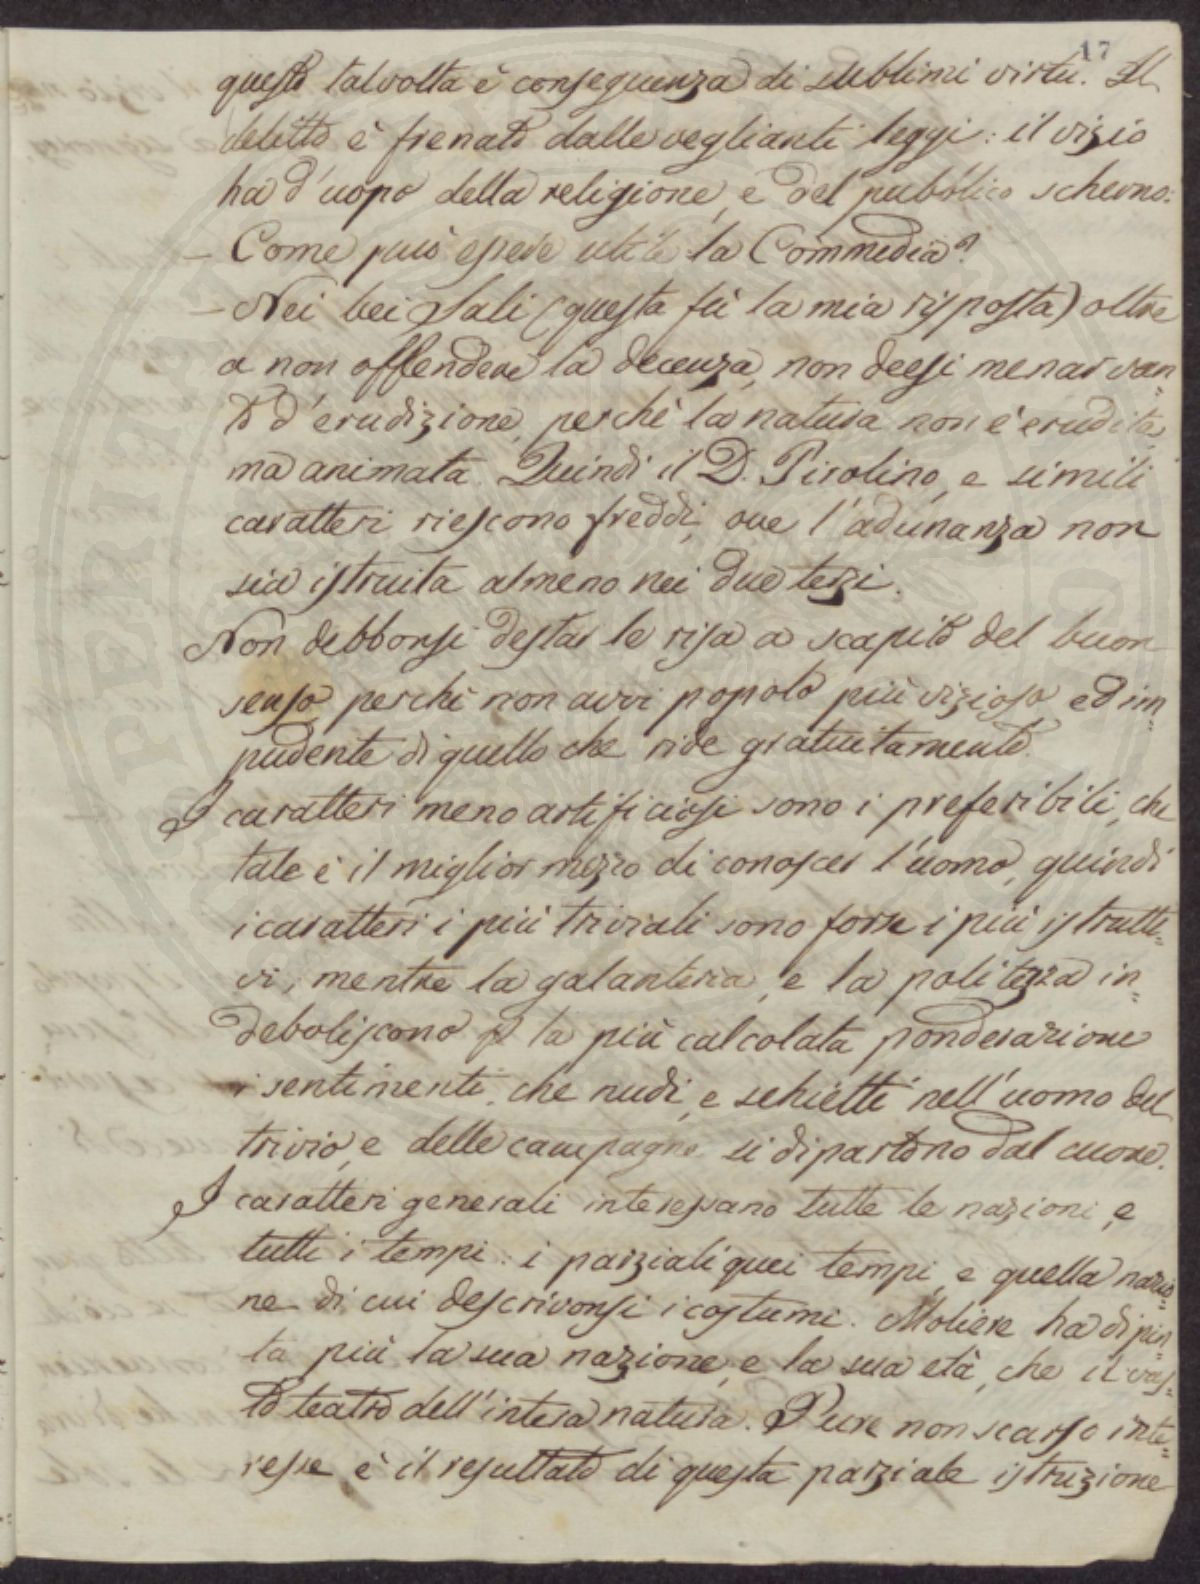 17
questo talvolta è conseguenza di sublimi virtù. Il
delitto è frenato dalle veglianti leggi: il vizio
ha d'uopo della religione, e del pubblico scherno.
– Come può essere utile la Commedia?
– Nei bei Sali (questa fù la mia risposta) oltre
a non offendere la decenza, non deesi menar van=
to d'erudizione, perchè la natura non è erudita,
ma animata. Quindi il D. Pirolino, e simili
caratteri riescono freddi, ove l'adunanza non
sia istruita almeno nei due terzi.
Non debbonsi destar le risa a scapito del buon
senso, perchè non avvi popolo più vizioso ed im=
pudente di quello che ride gratuitamente.
I caratteri meno artificiosi sono i preferibili, che
tale è il miglior mezzo di conoscer l'uomo, quindi
i caratteri i più triviali sono forse i più istrutti=
vi, mentre la galanteria, e la politezza in=
deboliscono la più calcolata ponderazione
i sentimenti, che nudi, e schietti nell'uomo del
trivio, e delle campagne si dipartono dal cuore.
I caratteri generali interessano tutte le nazioni, e
tutti i tempi: i parziali quei tempi, e quella nazio=
ne di cui descrivonsi i costumi. Moliere ha dipin=
ta più la sua nazione, e la sua età, che il vas=
to teatro dell'intera natura. Pure non scarso inte=
resse è il resultato di questa parziale istruzione